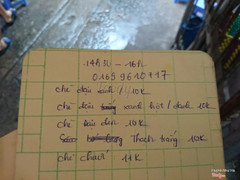 14h30 - 16h
01659610717
chè đậu xanh / 10K
chè đậu xanh hột / đánh 10K
chè đậu đen 10K
Thạch trắng 10K
chè chuối 11K